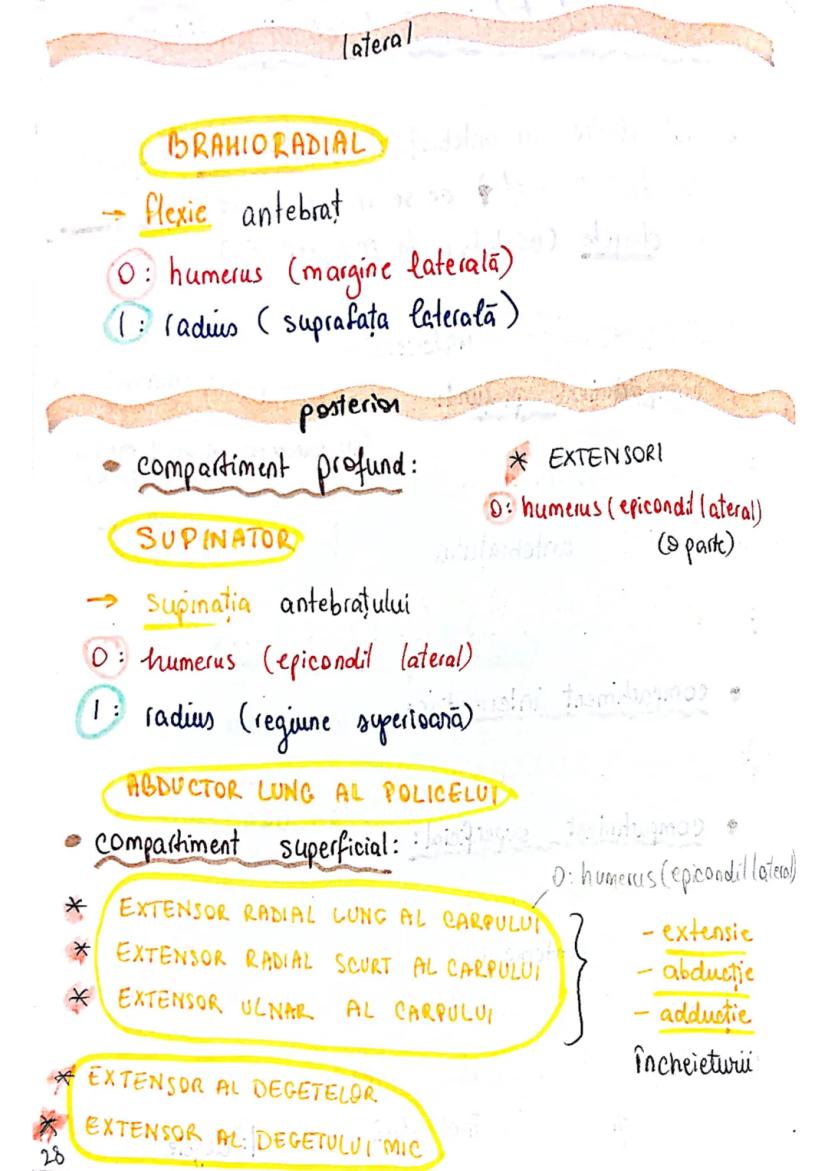 lateral
BRAHIORADIAL
→ flexie antebraț
O: humerus (margine laterală)
I: radius (suprafața laterală)
posterior
• compartiment profund:
* EXTENSORI
O: humerus (epicondil lateral)
(o parte)
SUPINATOR
→ Supinația antebrațului
O: humerus (epicondil lateral)
I: radius (regiune superioară)
ABDUCTOR LUNG AL POLICELUI
• compartiment superficial:
O: humerus (epicondil lateral)
* EXTENSOR RADIAL LUNG AL CARPULUI
* EXTENSOR RADIAL SCURT AL CARPULUI
* EXTENSOR ULNAR AL CARPULUI
- extensie
- abducție
- adducție
încheieturii
* EXTENSOR AL DEGETELOR
* EXTENSOR AL DEGETULUI MIC
28